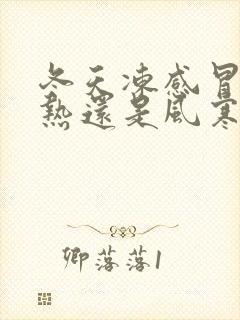 冬天凍感冒
熱還是風寒
卿落落1